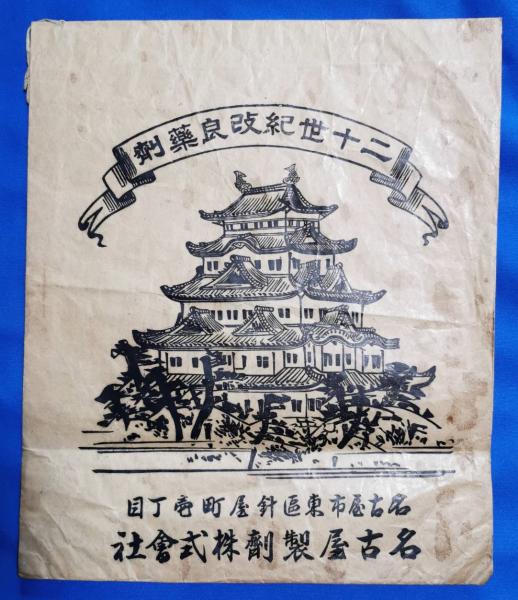 二十世紀改良藥劑
名古屋市東區針屋町壱丁目
名古屋製劑株式會社